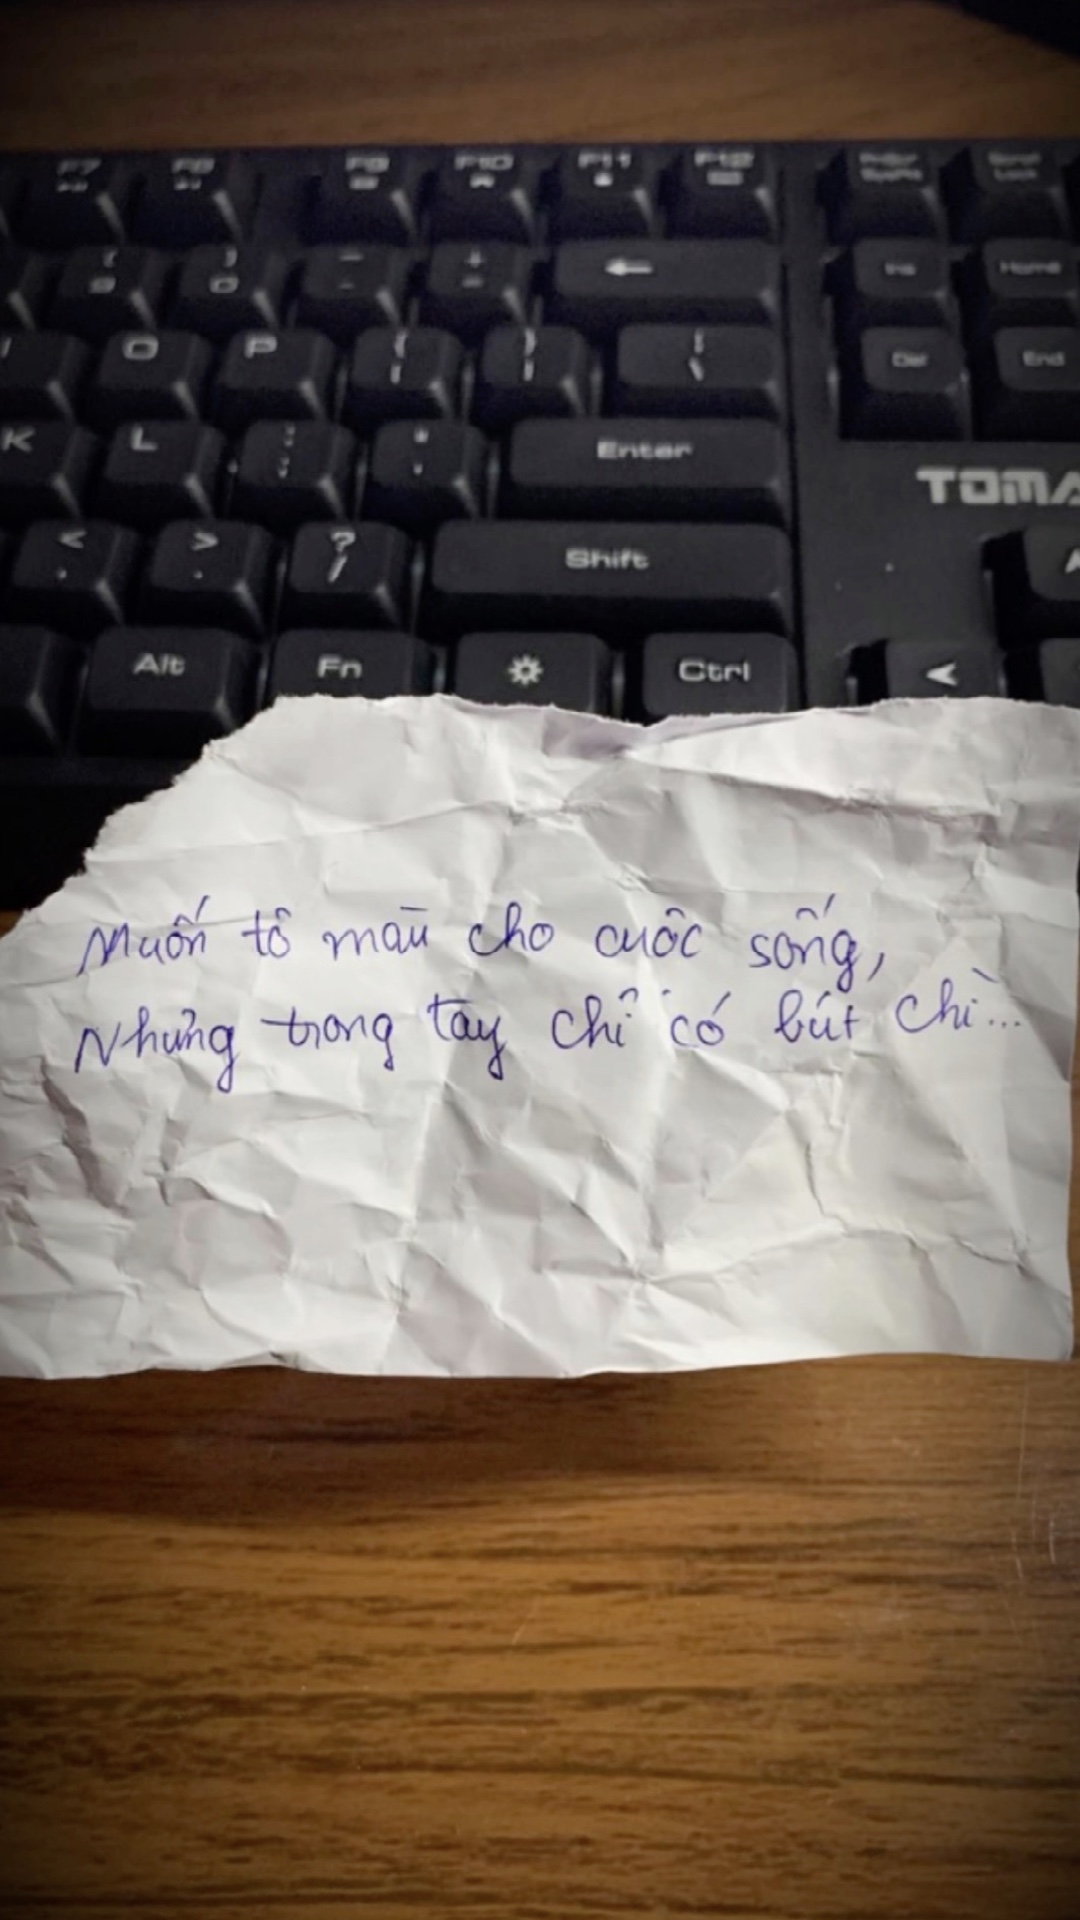 F7 F8 F9 F10 F11 F12
( 9 ) 0 - + = ← Ins Home
O P { [ } ] Del End
K L : ; " ' Enter
TOMA
< , > . ? / Shift
Alt Fn Ctrl
Muốn tô màu cho cuộc sống,
Nhưng trong tay chỉ có bút chì...